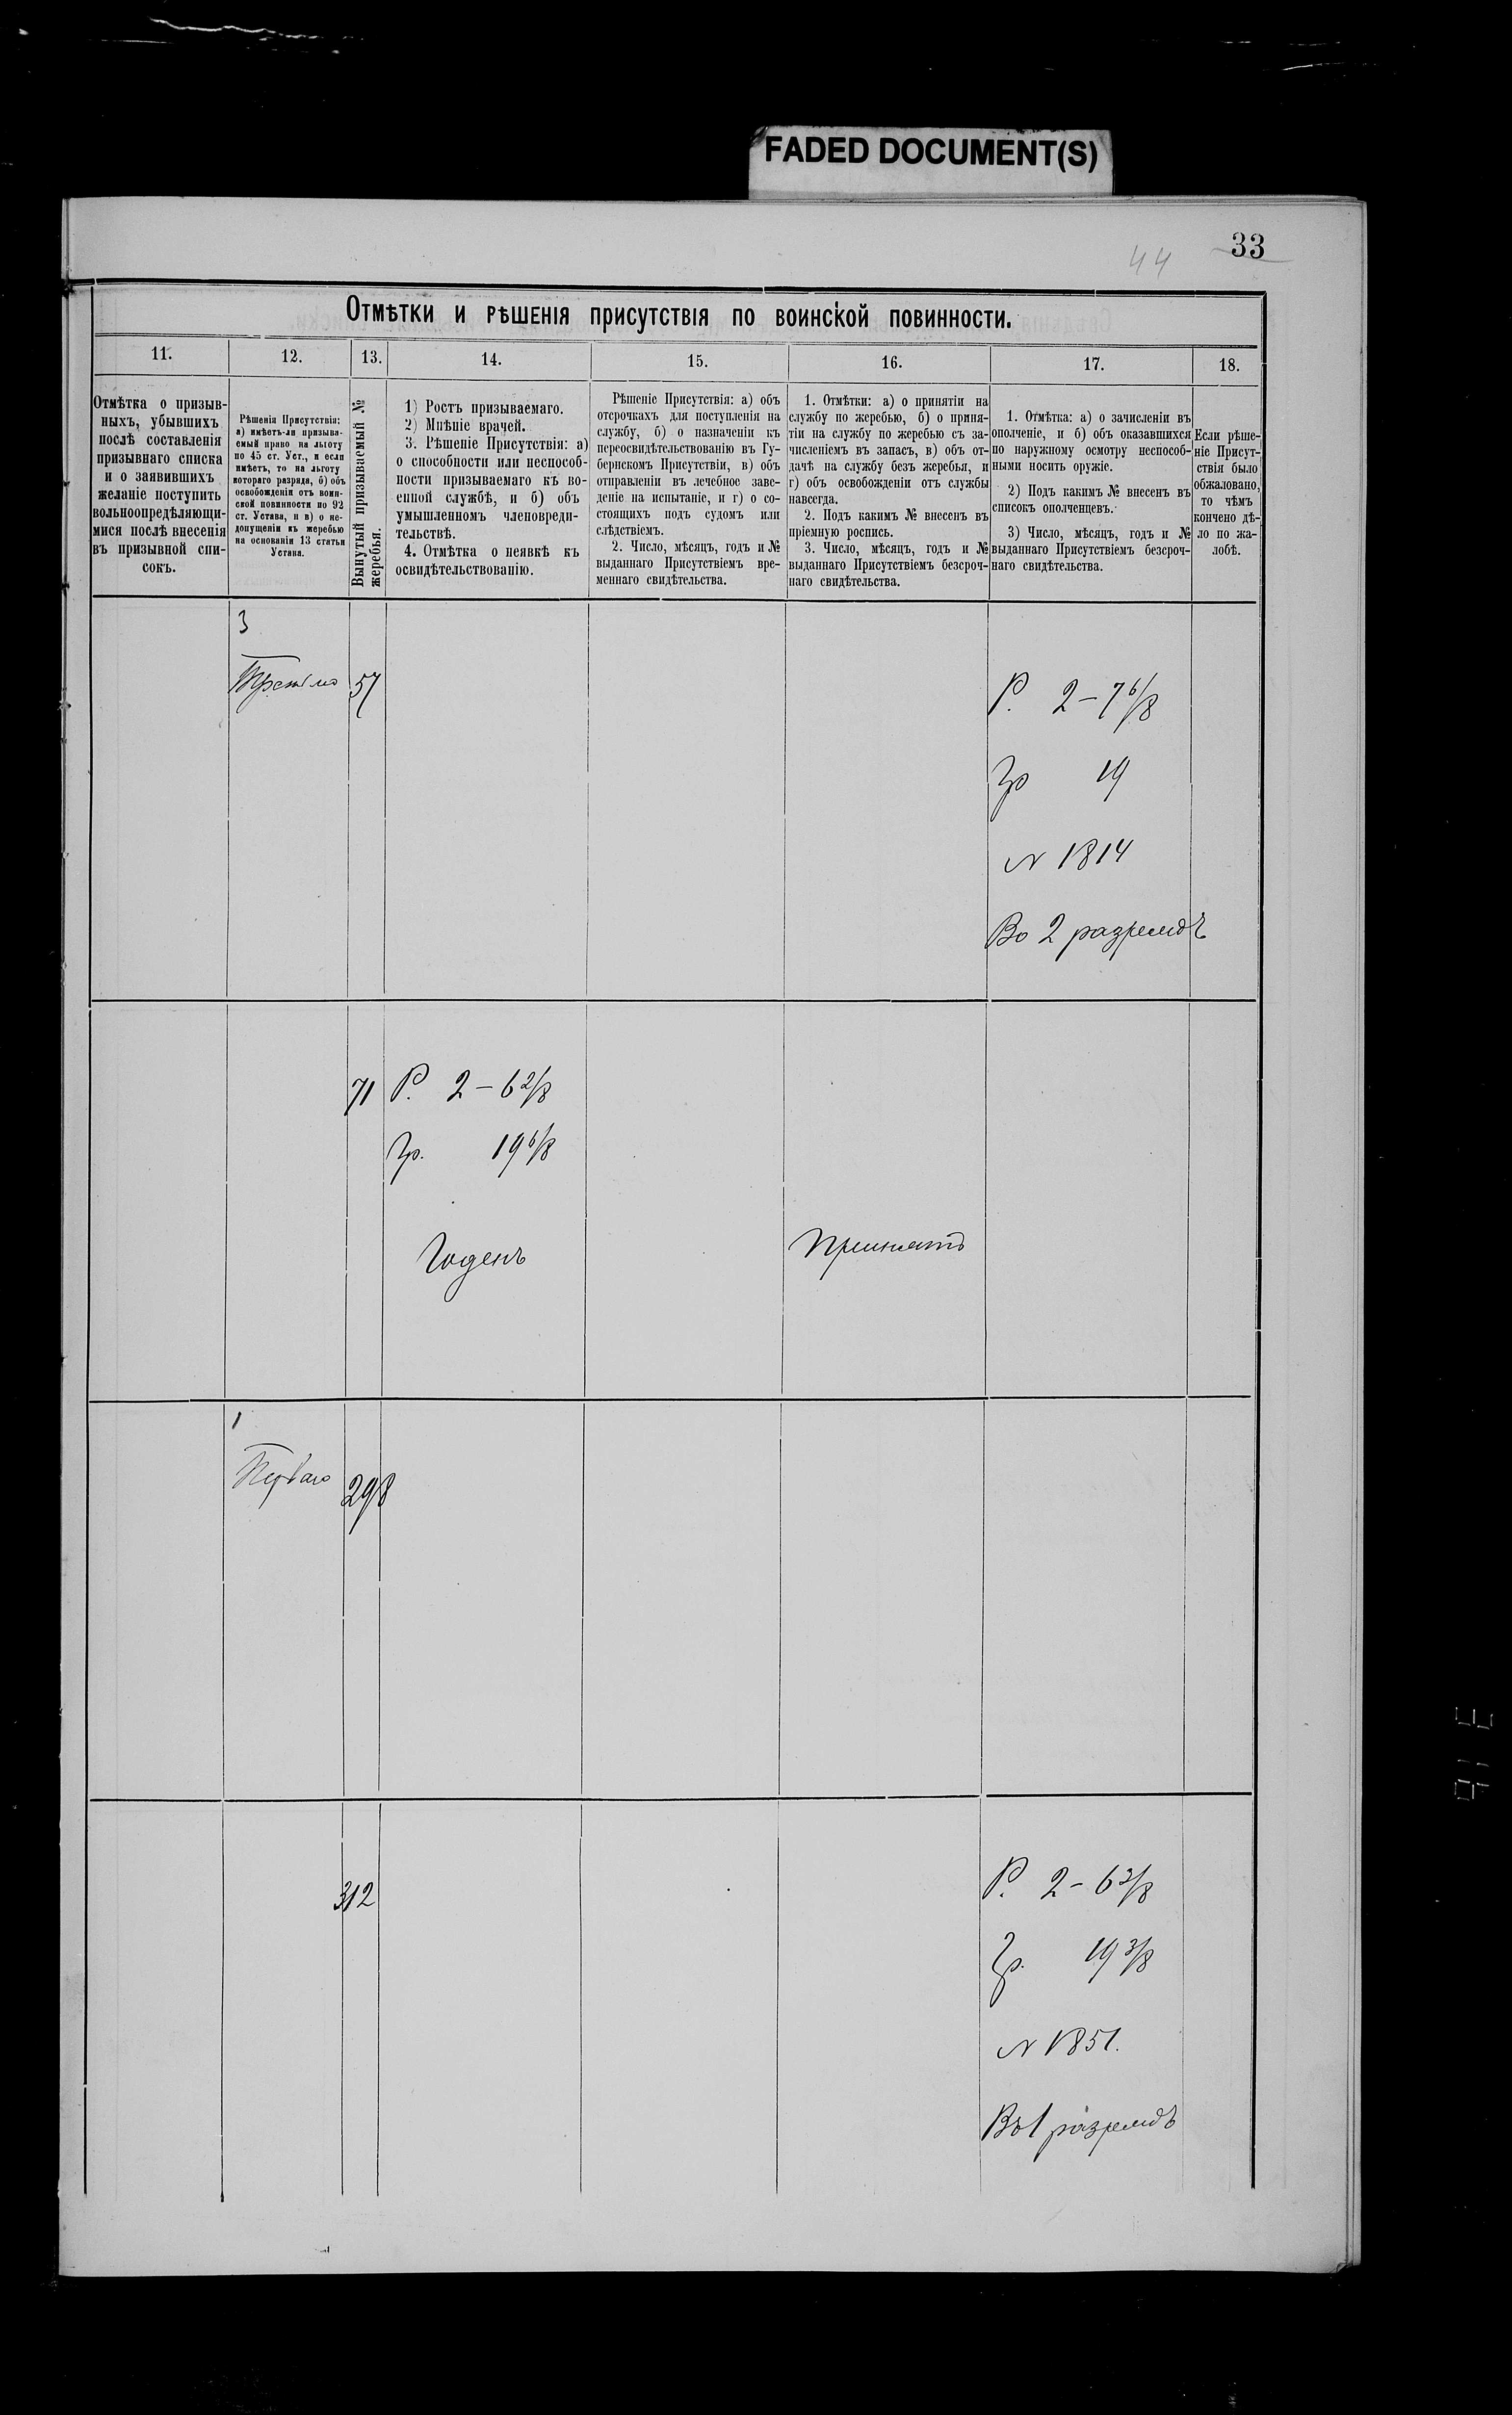 FADED DOCUMENT(S)
33
44
Отмѣтки и рѣшенія присутствія по воинской повинности.
11.
12.
13.
14.
15.
16.
17.
18.
Отмѣтка о призыв-
ныхъ, убывшихъ
послѣ составленія
призывнаго списка
и о заявившихъ
желаніе поступить
вольноопредѣляющи-
мися послѣ внесенія
въ призывной спи-
сокъ.
Рѣшенія Присутствія:
а) имѣетъ-ли призыва-
емый право на льготу
по 45 ст. Уст., и если
имѣетъ, то на льготу
котораго разряда, б) объ
освобожденіи отъ воин-
ской повинности по 92
ст. Устава, и в) о не-
допущеніи къ жеребью
на основаніи 13 статьи
Устава.
Вынутый призываемый №
жеребья.
1) Ростъ призываемаго.
2) Мнѣніе врачей.
3. Рѣшеніе Присутствія: а)
о способности или неспособ-
ности призываемаго къ во-
енной службѣ, и б) объ
умышленномъ членовреди-
тельствѣ.
4. Отмѣтка о неявкѣ къ
освидѣтельствованію.
Рѣшеніе Присутствія: а) объ
отсрочкахъ для поступленія на
службу, б) о назначеніи къ
переосвидѣтельствованію въ Гу-
бернскомъ Присутствіи, в) объ
отправленіи въ лечебное заве-
деніе на испытаніе, и г) о со-
стоящихъ подъ судомъ или
слѣдствіемъ.
2. Число, мѣсяцъ, годъ и №
выданнаго Присутствіемъ вре-
меннаго свидѣтельства.
1. Отмѣтки: а) о принятіи на
службу по жеребью, б) о приня-
тіи на службу по жеребью съ за-
численіемъ въ запасъ, в) объ от-
дачѣ на службу безъ жеребья, и
г) объ освобожденіи отъ службы
навсегда.
2. Подъ какимъ № внесенъ въ
пріемную роспись.
3. Число, мѣсяцъ, годъ и №
выданнаго Присутствіемъ безсроч-
наго свидѣтельства.
1. Отмѣтка: а) о зачисленіи въ
ополченіе, и б) объ оказавшихся
по наружному осмотру неспособ-
ными носить оружіе.
2) Подъ какимъ № внесенъ въ
списокъ ополченцевъ.
3) Число, мѣсяцъ, годъ и №
выданнаго Присутствіемъ безсроч-
наго свидѣтельства.
Если рѣше-
ніе Присут-
ствія было
обжаловано,
то чѣмъ
кончено дѣ-
ло по жа-
лобѣ.
3
Третьяго
57
Р. 2-7 6/8
Гр 19
N 1814
Во 2 разрядъ
71
Р. 2-6 2/8
Гр. 19 6/8
Годенъ
Принятъ
1
Перваго
298
312
Р. 2-6 3/8
Гр. 19 3/8
N 1851.
Въ 1 разрядъ